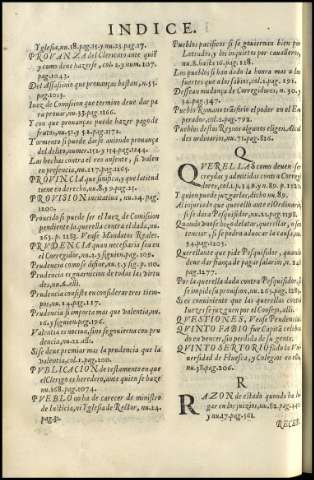 INDICE.
Yglesia, nu.18. pag.15. y nu.23. pag.17.
PROVANZA del Clerc ante que
y como deue hazerse, col. 2. y num. 107.
pag. 1042.
Del Assassinio que prouanças bastan, n.55.
pag. 1023.
Iuez de Comission que termino deue dar pa
ra prouar, nu. 33. pag. 1166.
Y con que prouanças puede hazer pago de
nu. 51. y 52. pag. 1172.
Tormento si puede dar se auiendo prouança
del delicto, num. 152. y 154. pag. 1244.
Las hechas contra el reo ausente, si valen
PROVINCIA que sinifica y que estendi
tiene en derecho, nu. 8. y 9. pag. 21.
PROVISION incitatiua, nu. 24. pag.
1200.
Prouéido si puede ser el Iuez de Comision
pendiente la querella contra el dada, nu.
263. p. 1283. Vease Mandatos Reales.
PRVDENCIA quan necessaria sea en
el Corregidor, nu. 1. y siguien. pag. 109.
Prudencia como se difine, nu. 1. y seq. p. 110.
Prudencia es guarnicion de todas las virtu
des, nu. 6. alli.
Prudencia consiste en considerar tres tiem
pos, nu. 14. pag. 117.
Prudencia si importa mas que valentia, nu.
16. y siguien. pag. 196.
Valentia es nociua, sino se guierna con pru
dencia, nu. 22. alli.
Si se deue premiar mas la prudencia que la
valentia, col. 1. pag. 100.
PVBLICACION de testamento en que
el Clerigo es heredero, ante quien se haze
nu. 168. pag. 1074.
PVEBLO no ha de carecer de ministro
de Iusticia, ni Yglesia de Retor, nu. 24.
pag. 41.
Pueblos pacificos si se gouiernan bien por
Letrados, y los inquietos por caualleros,
nu. 8. hasta 10. pag. 128.
Los pueblos si han dado la honra mas a los
fuertes que a los sabios, col. 2. pag. 191.
Dessean mudança de Corregidores, nu. 30. y
34. pag. 147.
Pueblo Romano trasfirio el poder en el Em
perador, col. 2. pag. 792.
Pueblos destos Reynos algunos eligen Alcal
des ordinarios, nu. 71. pag. 826.
Q
QVERELLAS como deuen ser
creydas y admitidas contra Corregi
dores, col. 1. p. 34. y n. 89. p. 1132.
Y quien puede juzgarlas, dicho nu. 89.
Al injuriado que querella ante el Ordinario,
si se dara Pesquisidor, nu. 21. pag. 1198.
Quando vno se huuo de delatar, querellar, o de
nunciar, si se podra aduocar la causa, nu.
54. pag. 1203.
Querellante que pide Pesquisidor, quando
deue dar fiança de pagar salarios, nu. 246
pag. 1277.
Por la querella dada contra el Pesquisidor, si
se impide de proseguir, nu. 265. pag. 1283.
Si es conueniente que las querellas contra
Iuezes se juzguen por el Consejo, alli.
QVESTIONES, Vease Pendencias.
QVINTO FABIO fue Capitã celebra
do en vencer, sin perdida de su gente.
QVINTO SERTORIO fundo la Vni
uersidad de Huesca, y Colegio en ella,
nu. 38. pag. 206.
R
RAZON de estado quando ha lu
gar en los juyzios, nu. 82. pag. 442
y nu. 17. pag. 561.
RECEP